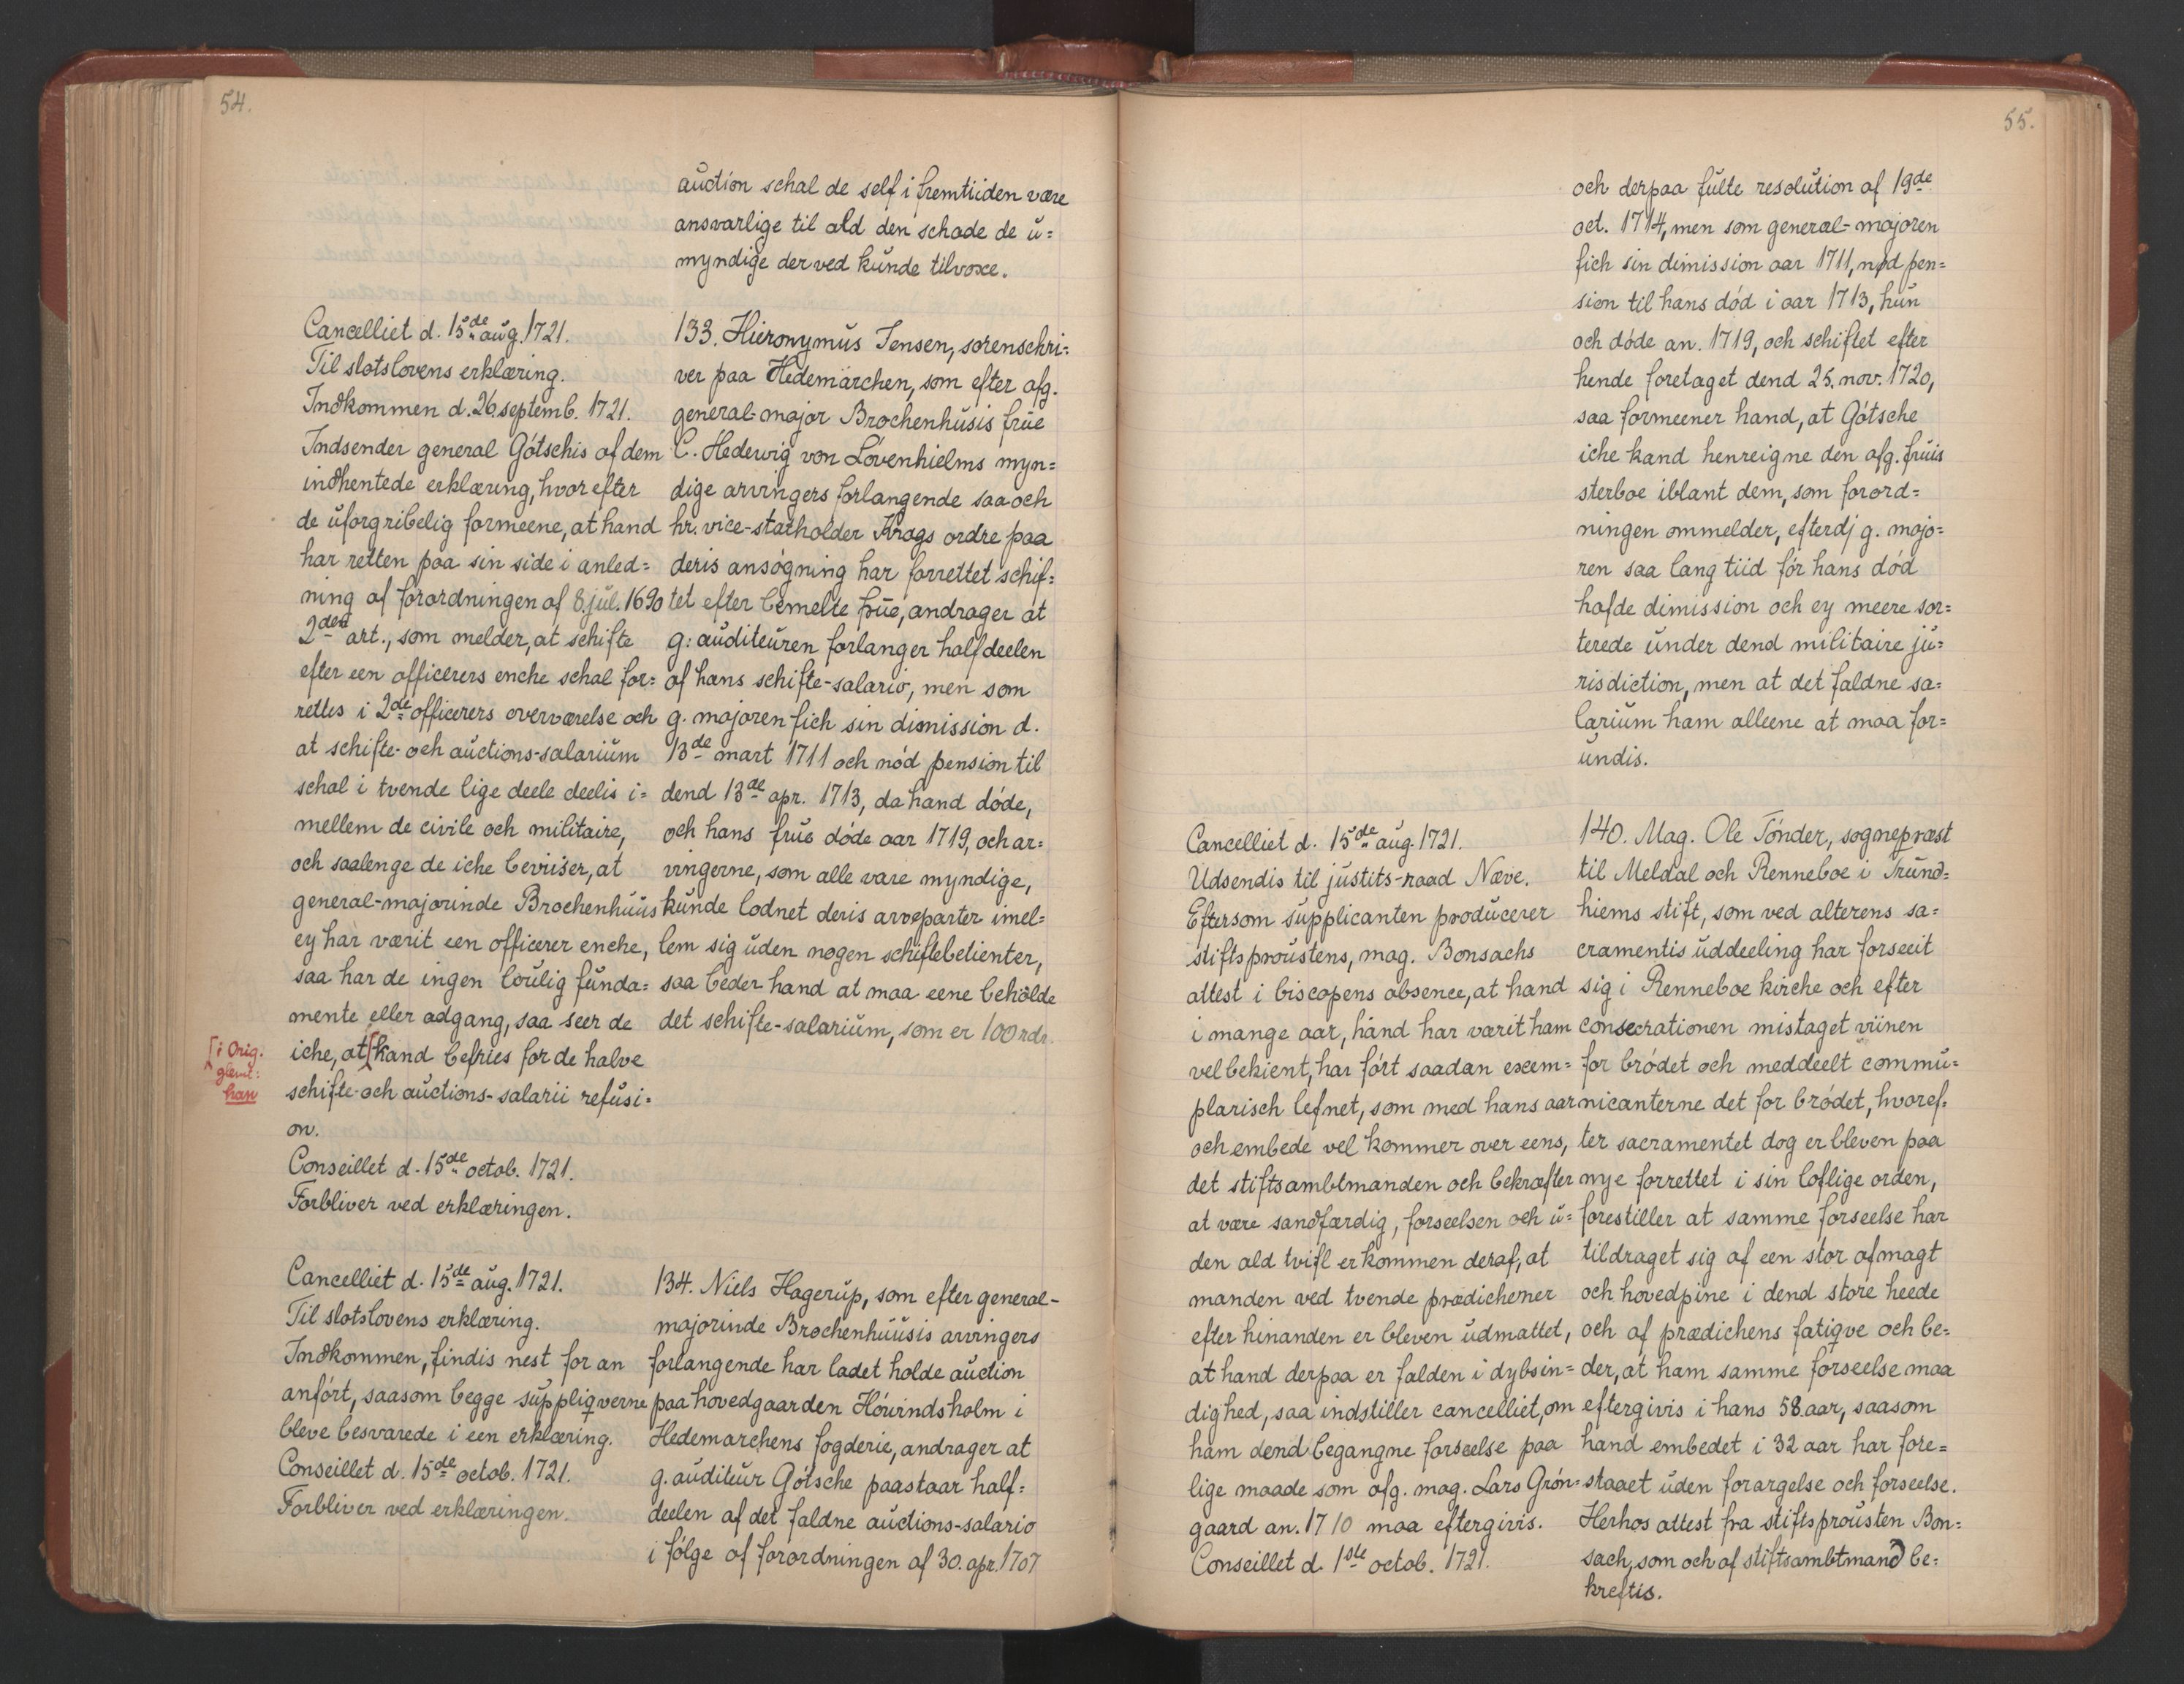 54.
auction schal de self i fremtiiden være
ansvarlige til ald den schade de u=
myndige der ved kunde tilvoxe.
Cancelliet d. 15de aug. 1721.
Til slotslovens erklæring.
Indkommen d. 26. septemb. 1721.
Indsender general Götschis af dem
indhentede erklæring, hvor efter
de uforgribelig formeene, at hand
har retten paa sin side i anled=
ning af forordningen af 8. jul. 1690
2den art., som melder, at schifte
efter een officerers enche schal for=
rettes i 2de officerers overværelse och
at schifte- och auctions-salarium
schal i tvende lige deele deelis i=
mellem de civile och militaire,
och saalenge de iche beviiser, at
general-majorinde Brochenhuus
ey har værit een officerer enche,
saa har de ingen loulig funda=
mente eller adgang, saa seer de
iche, at [kand befries for de halve
schifte- och auctions-salarii refusi=
on.
[i Orig.
glemt:
han
Conseillet d. 15de octob. 1721.
Forbliver ved erklæringen.
133. Hieronymus Jensen, sorenschri=
ver paa Hedemarchen, som efter afg.
general-major Brochenhusis frue
C. Hedewig von Lövenhielms myn=
dige arvingers forlangende saa och
hr. vice-statholder Krags ordre paa
deris ansögning har forrettet schif=
tet efter bemelte frue, andrager at
g: auditeuren forlanger halfdeelen
af hans schifte-salario, men som
g. majoren fich sin dimission d.
13de mart 1711 och nöd pension til
dend 13de apr. 1713, da hand döde,
och hans frue döde aar 1719, och ar=
vingerne, som alle vare myndige,
kunde lodnet deris arveparter imel=
lem sig uden nogen schiftebetienter,
saa beder hand at maa eene beholde
det schifte-salarium, som er 100 rdr.
Cancelliet d. 15de aug. 1721.
Til slotslovens erklæring.
Indkommen, findis nest for an
anfört, saasom begge suppliqverne
bleve besvarede i een erklæring.
Conseillet d. 15de octob. 1721.
Forbliver ved erklæringen.
134. Niels Hagerup, som efter general-
majorinde Brochenhuusis arvingers
forlangende har ladet holde auction
paa hovedgaarden Höwindsholm i
Hedemarchens fogderie, andrager at
g. auditeur Götsche paastaar half=
deelen af det faldne auctions-salario
i fölge af forordningen af 30. apr. 1707
55.
och derpaa fulte resolution af 19de
oct. 1714, men som general-majoren
fich sin dimission aar 1711, nød pen=
sion til hans död i aar 1713, hun
och döde an. 1719, och schiftet efter
hende foretaget dend 25. nov. 1720,
saa formeener hand, at Götsche
iche kand henreigne den afg. fruis
sterboe iblant dem, som forord=
ningen ommelder, efterdj g. majo=
ren saa lang tiid för hans död
hafde dimission och ey meere sor=
terede under dend militaire ju=
risdiction, men at det faldne sa=
larium ham alleene at maa for=
undis.
Cancelliet d. 15de aug. 1721.
Udsendis til justits-raad Næve.
Eftersom supplicanten producerer
stiftsproustens, mag. Bonsachs
attest i biscopens absence, at hand
i mange aar, hand har værit ham
vel bekient, har fört saadan exem=
plarisch lefnet, som med hans aar
och embede vel kommer over eens,
det stiftsambtmanden och bekræfter
at være sandfærdig, forseelsen och u=
den ald tvifl er kommen deraf, at
manden ved tvende prædichener
efter hinanden er bleven udmattet,
at hand derpaa er falden i dybsin=
dighed, saa indstiller cancelliet, om
ham dend begangne forseelse paa
lige maade som afg. mag. Lars Grön=
gaard an. 1710 maa eftergivis.
Conseillet d. 1ste octob. 1721.
140. Mag. Ole Tönder, sognepræst
til Meldal och Renneboe i Trund=
hiems stift, som ved alterens sa=
cramentis uddeeling har forseeit
sig i Renneboe kirche och efter
consecrationen mistaget viinen
for brödet och meddeelt commu=
nicanterne det for brödet, hvoref=
ter sacramentet dog er bleven paa
nye forrettet i sin loflige orden,
forestiller at samme forseelse har
tildraget sig af een stor afmagt
och hovedpine i dend store heede
och af prædichens fatiqve och be=
der, at ham samme forseelse maa
eftergivis i hans 58. aar, saasom
hand embedet i 32 aar har fore=
staaet uden forargelse och forseelse.
Herhos attest fra stiftsprousten Bon=
sach, som och af stiftsambtmand be=
kreftis.